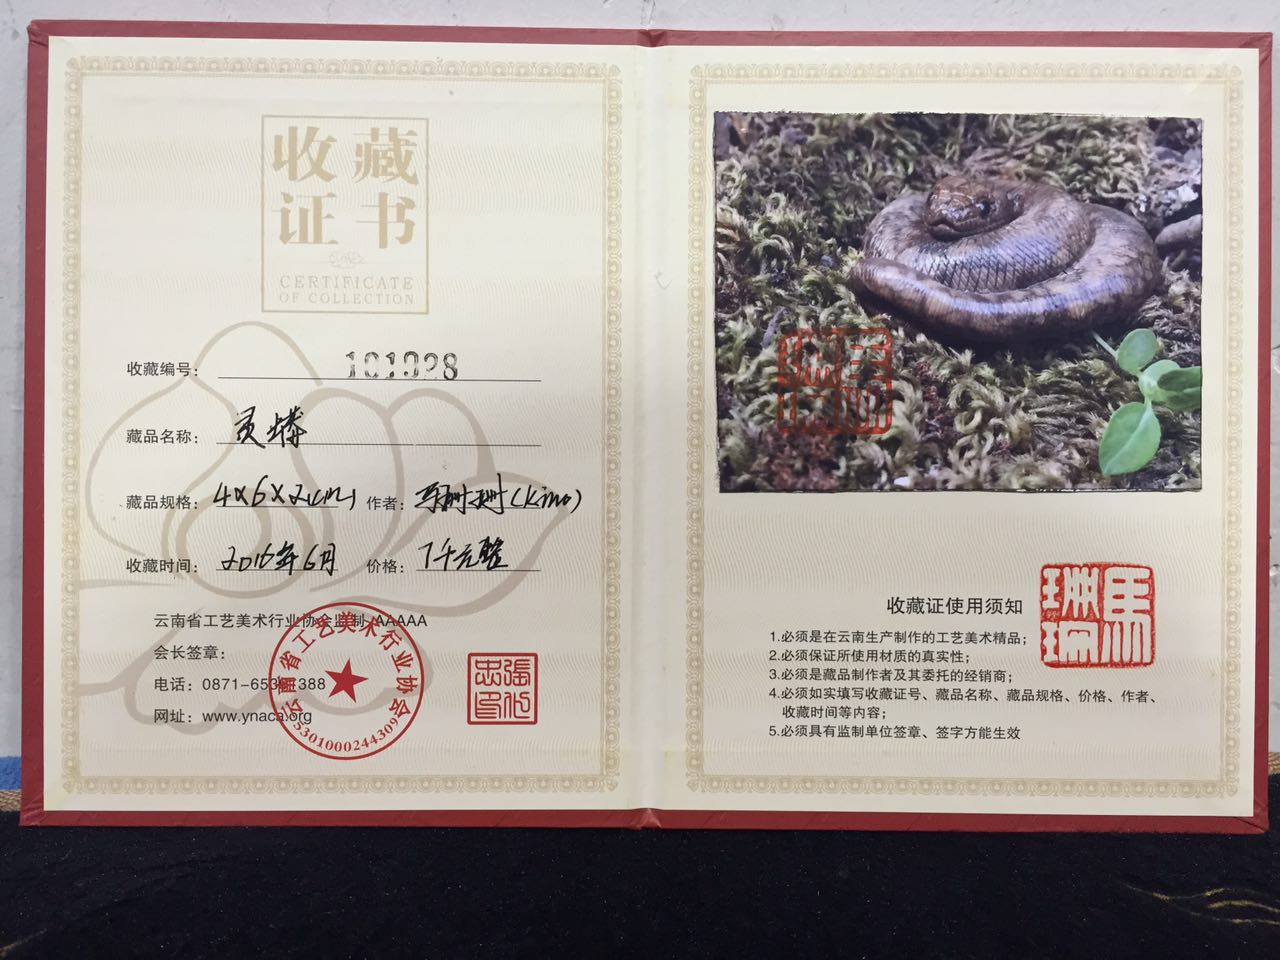 收藏
证书
CERTIFICATE
OF COLLECTION
收藏编号： 101928
藏品名称： 灵
藏品规格： 4×6×2cm 作者： 马珊珊(Kino)
收藏时间： 2016年6月 价格： 7千元整
云南省工艺美术行业协会监制 AAAAA
会长签章：
电话：0871-65 1388
网址：www.ynaca.org
云南省工艺美术行业协会
5301000244309
收藏证使用须知
1.必须是在云南生产制作的工艺美术精品；
2.必须保证所使用材质的真实性；
3.必须是藏品制作者及其委托的经销商；
4.必须如实填写收藏证号、藏品名称、藏品规格、价格、作者、
收藏时间等内容；
5.必须具有监制单位签章、签字方能生效